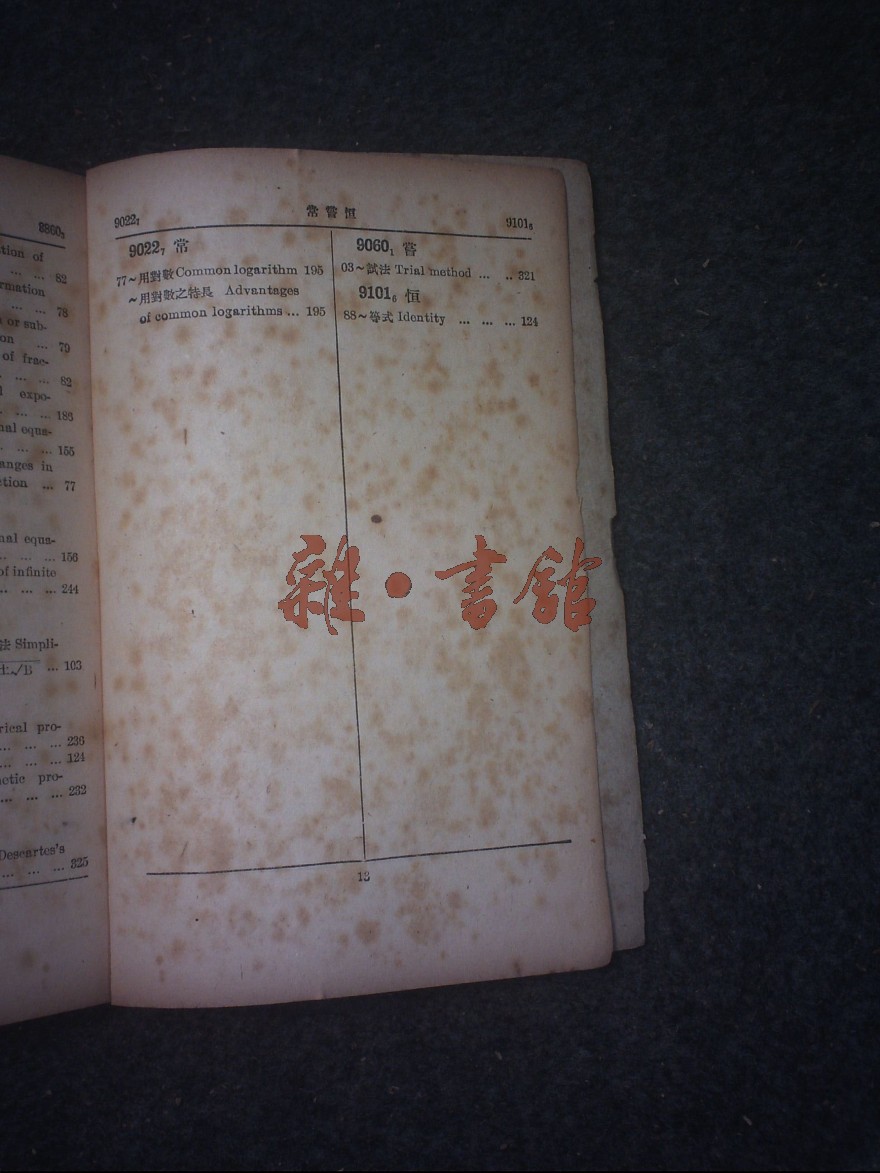 8860₃
tion of
... ... 82
rmation
... ... 78
or sub-
on ... 79
of frac-
... ... 82
expo-
... ... 186
nal equa-
... ... 155
anges in
ction ... 77
nal equa-
... ... ... 156
of infinite
... ... ... 244
法 Simpli-
±√B ... 103
rical pro-
... ... ... 236
... ... ... 124
etic pro-
... ... ... 232
Descartes's
... ... ... 325
9022₇ 常嘗恒 9101₆
9022₇ 常
77～用對數 Common logarithm 195
～用對數之特長 Advantages
of common logarithms ... 195
9060₁ 嘗
03～試法 Trial method ... .. 321
9101₆ 恒
88～等式 Identity ... ... ... 124
雜·書館
13